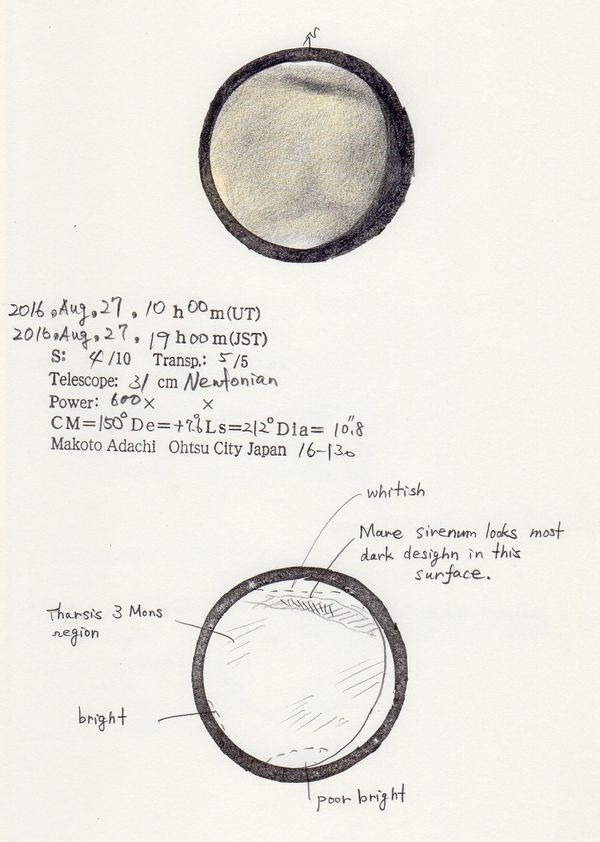 N
2016.Aug.27, 10 h 00 m (UT)
2016.Aug.27, 19 h 00 m (JST)
S: 4/10 Transp.: 5/5
Telescope: 31 cm Newtonian
Power: 600× ×
CM=150° De=+7.6° Ls=212° Dia= 10".8
Makoto Adachi Ohtsu City Japan 16-130
whitish
Mare sirenum looks most
dark desighn in this
surface.
Tharsis 3 Mons
region
bright
poor bright